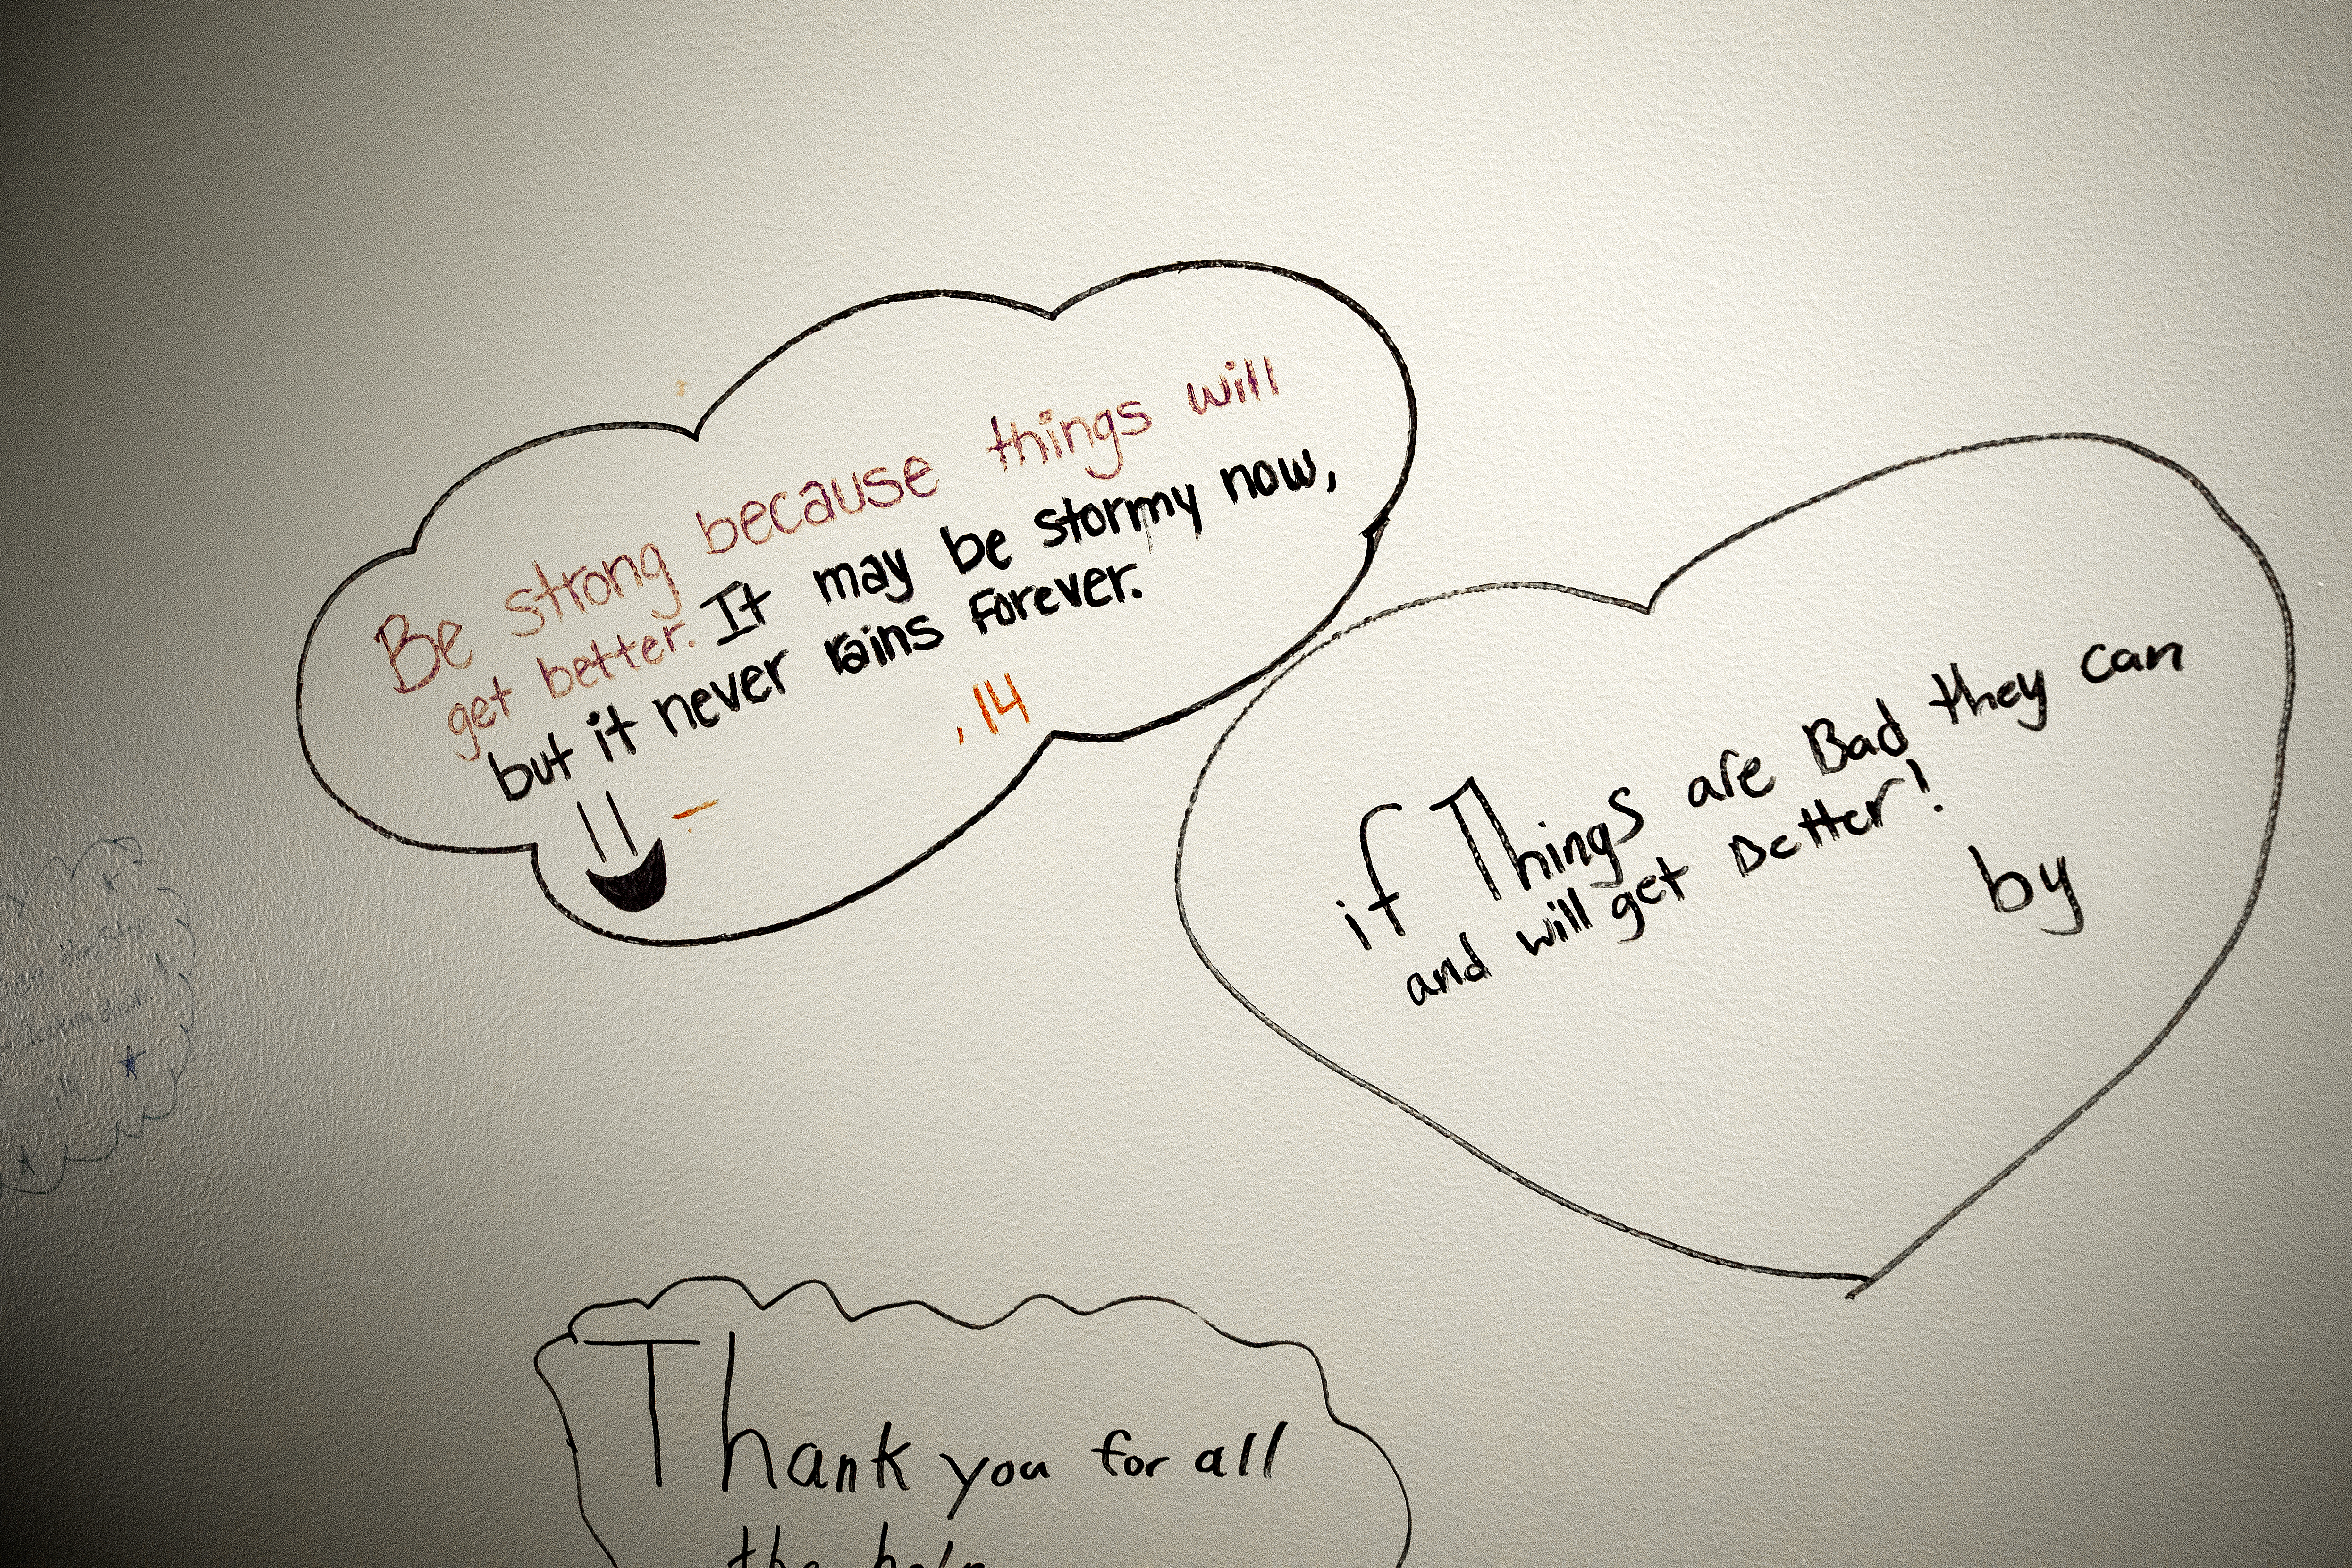 Be strong because things will
get better. It may be stormy now,
but it never rains forever.
, 14
if Things are Bad they can
and will get Better!
by
Thank you for all
the help